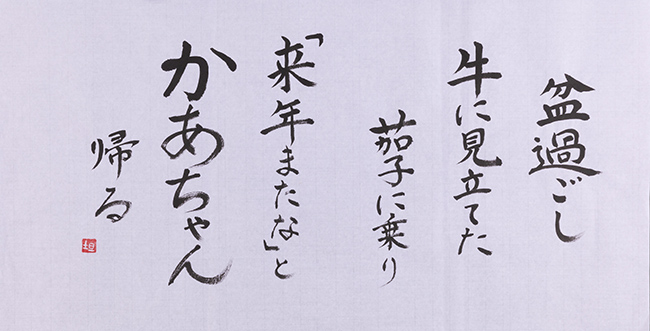 盆過ごし
牛に見立てた
茄子に乗り
「来年またな」と
かあちゃん
帰る
垣